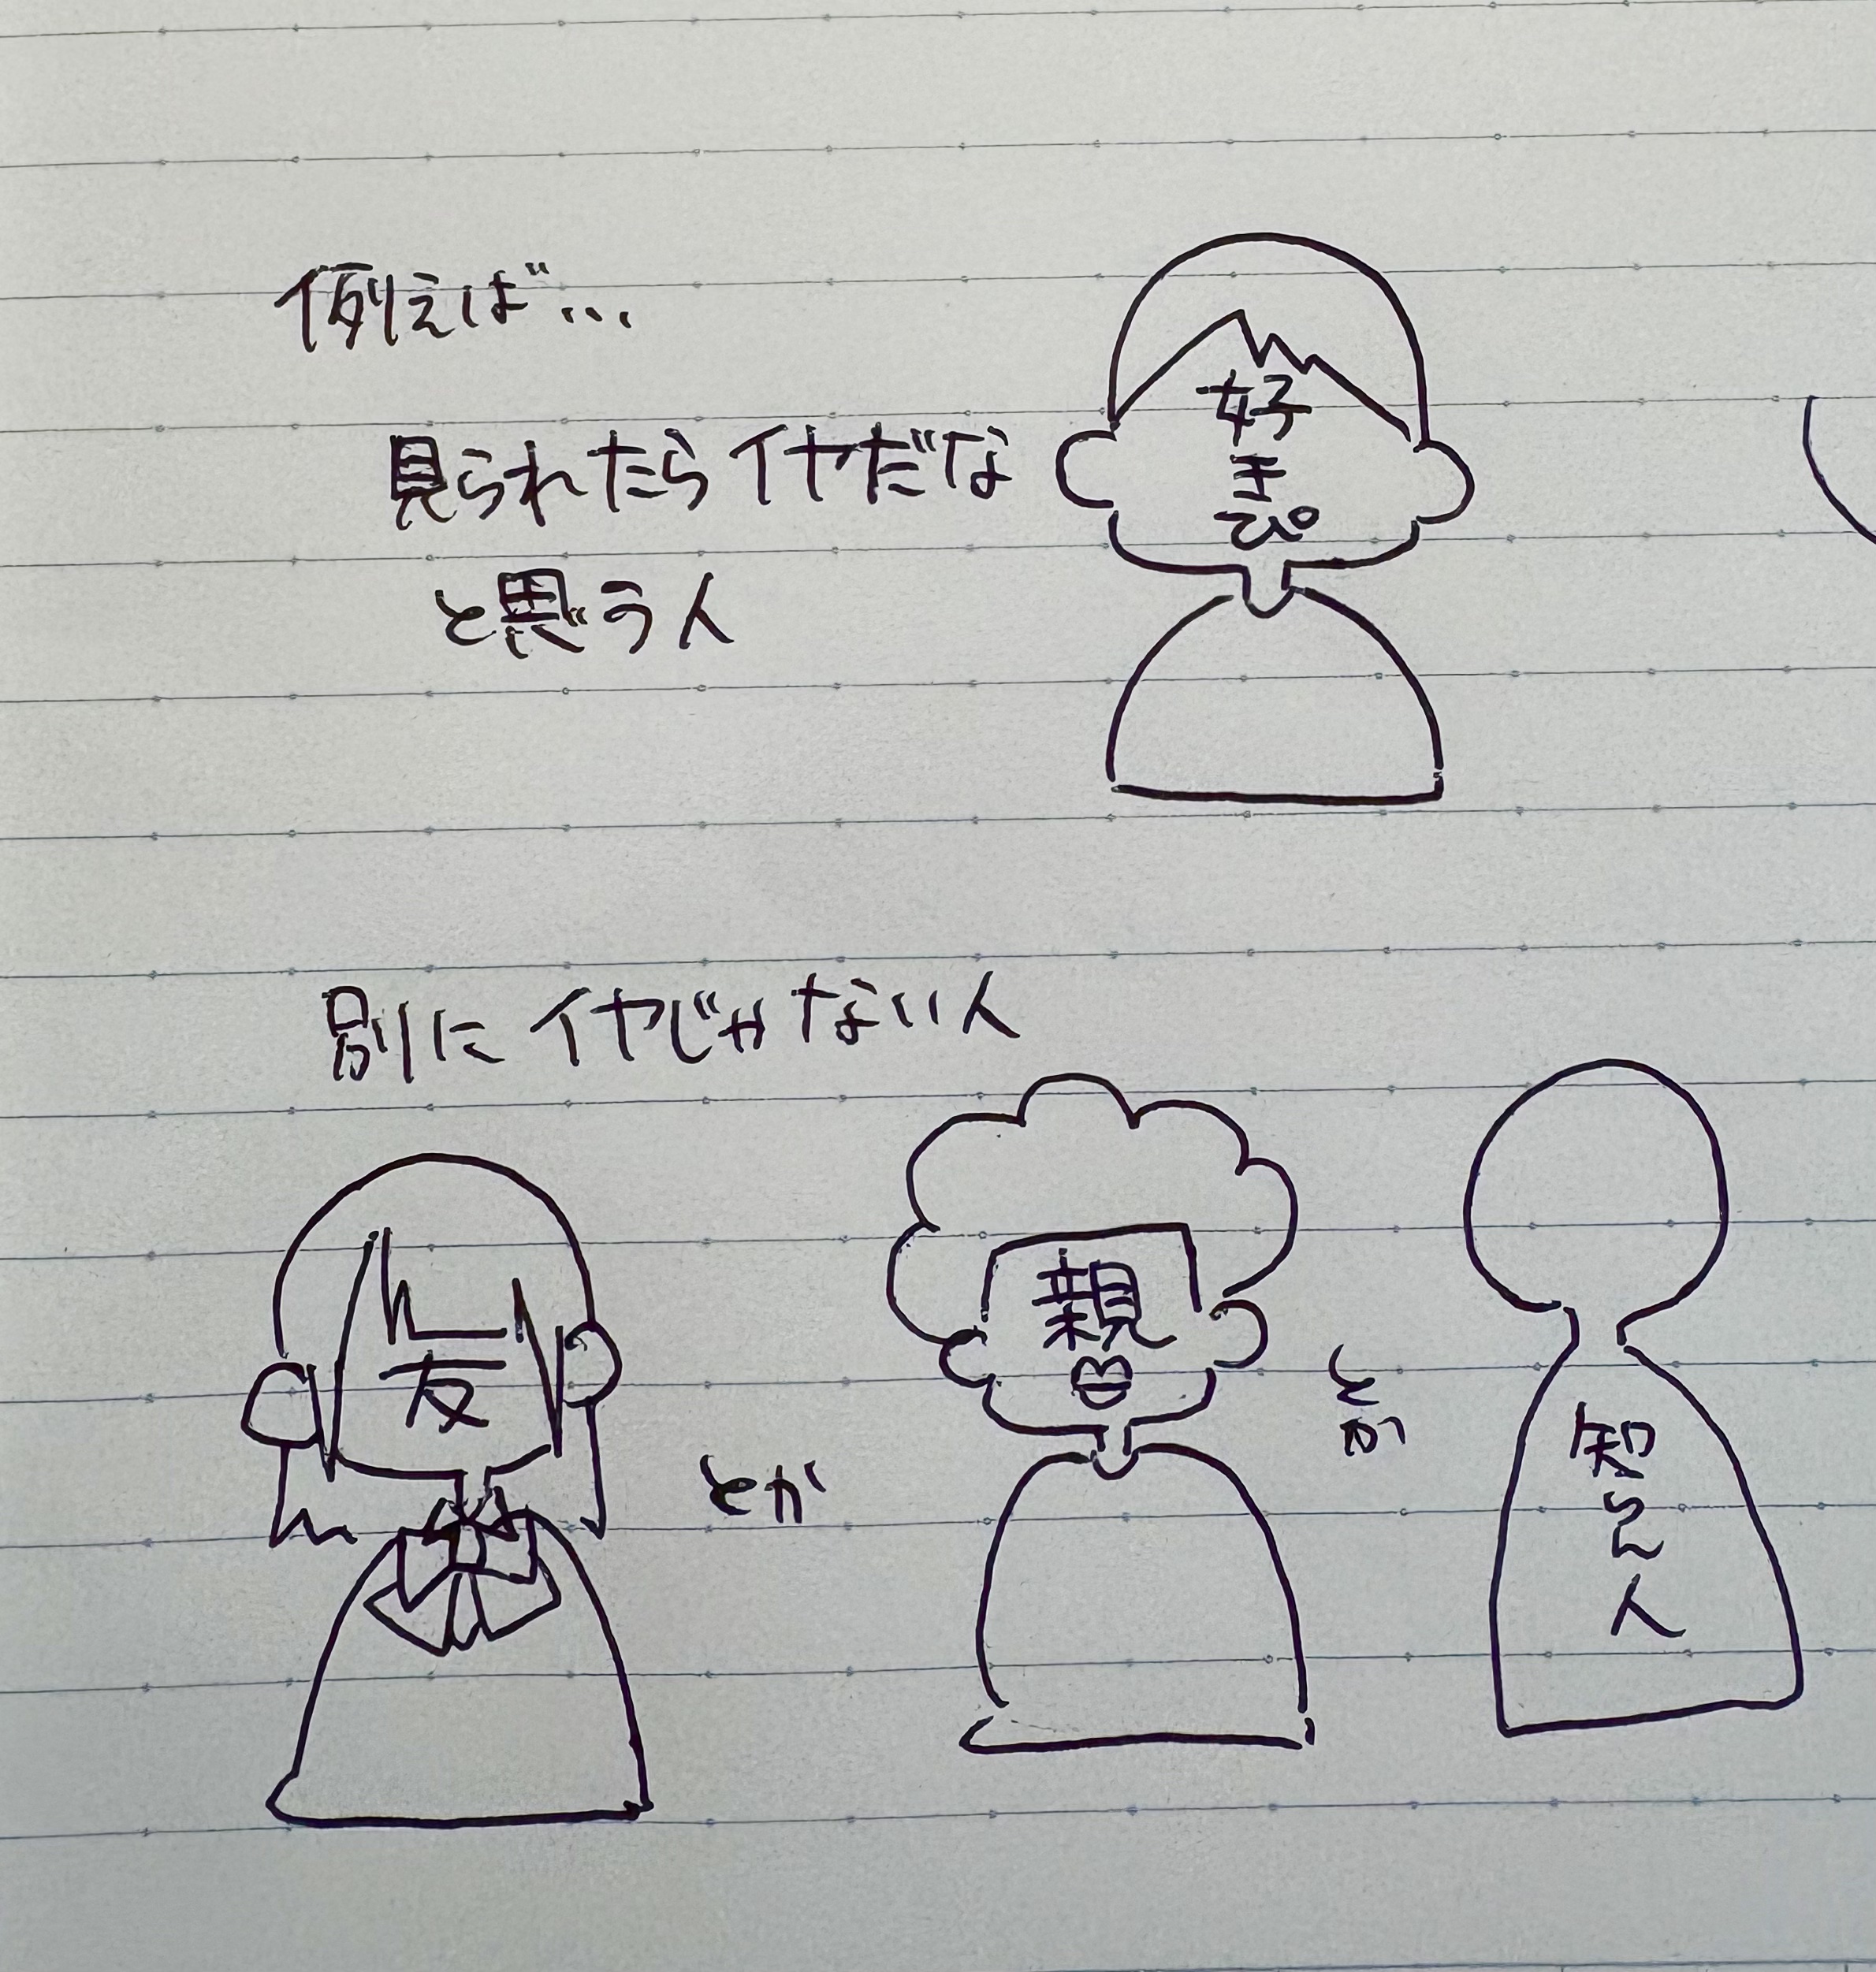 例えば…
見られたらイヤだな
と思う人
好
き
ぴ
別にイヤじゃない人
友
とか
親
とか
知らん人